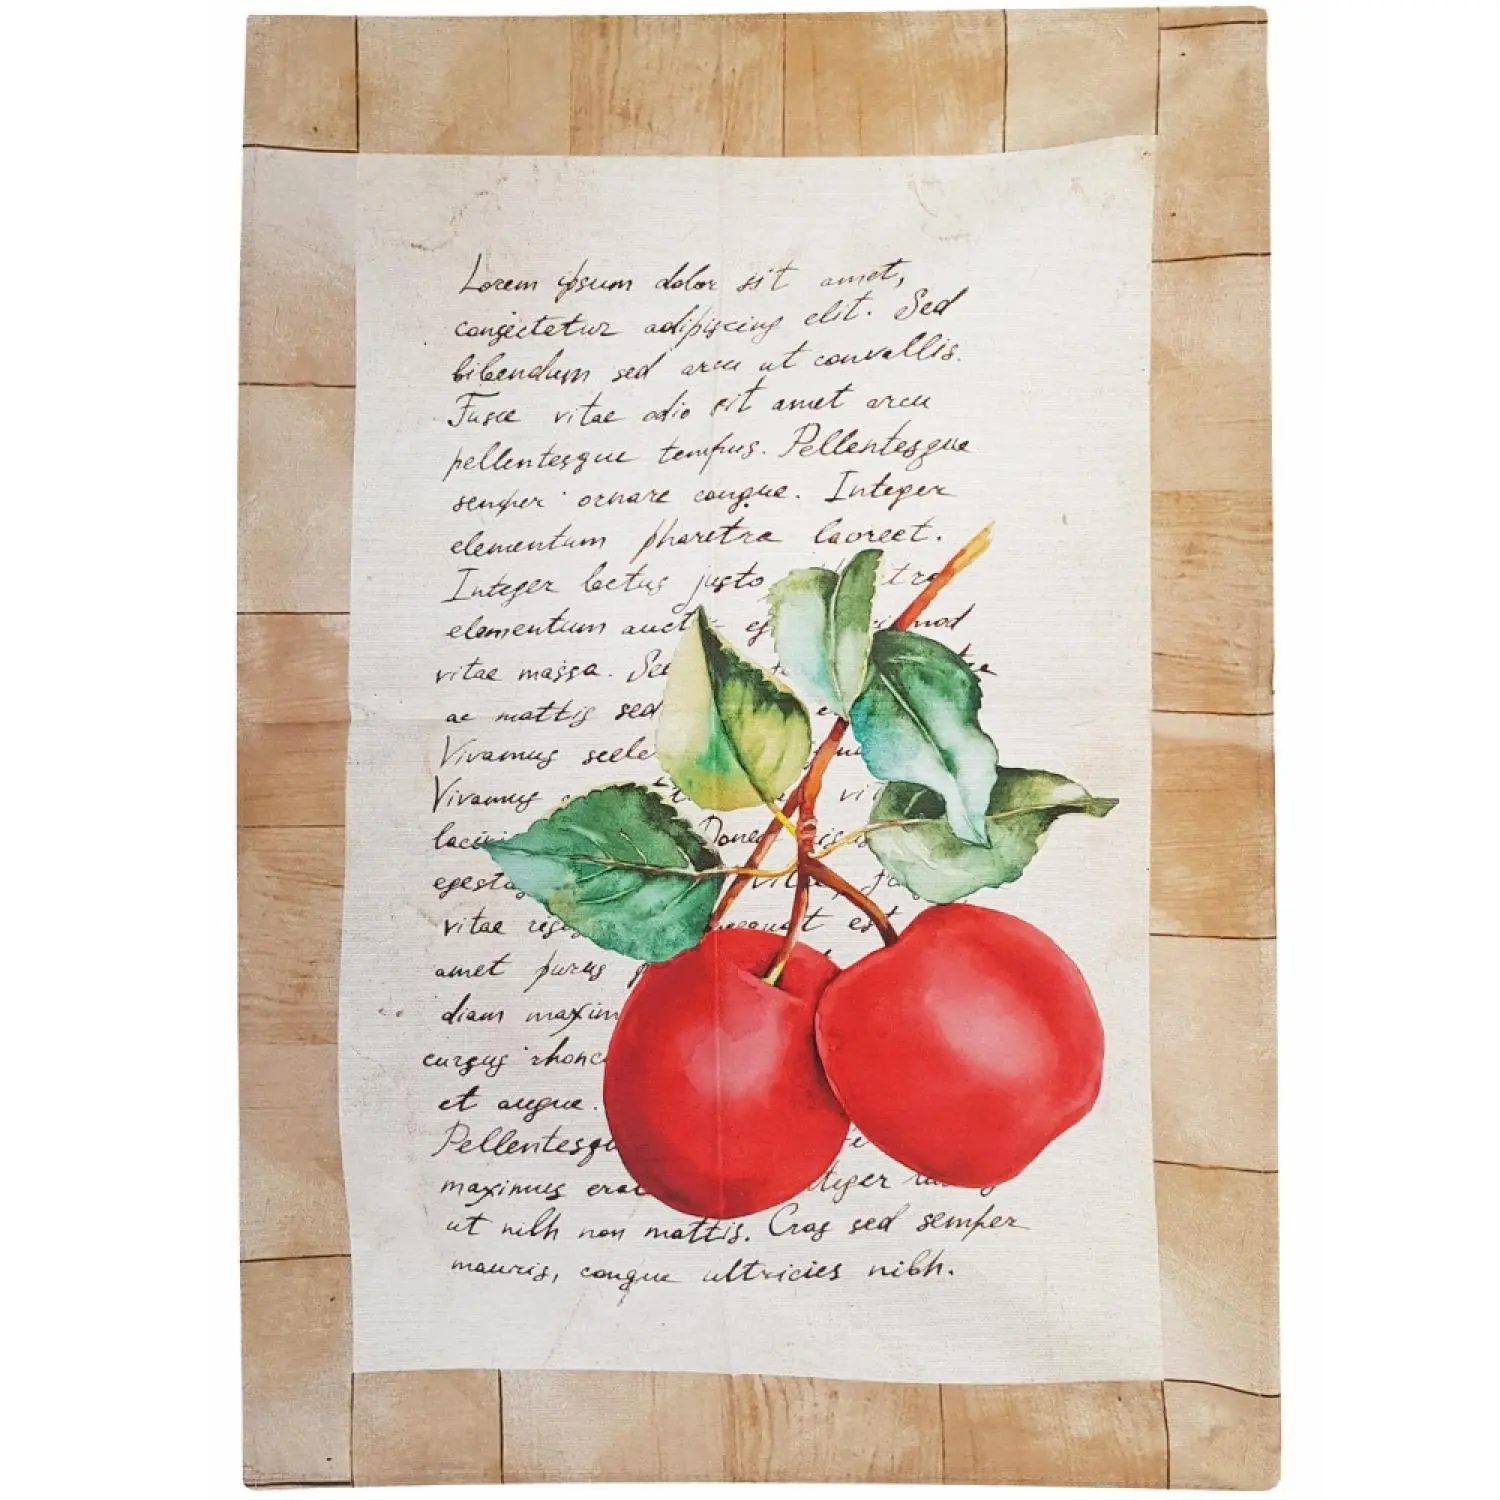 Lorem ipsum dolor sit amet,
consectetur adipiscing elit. Sed
bibendum sed arcu ut convallis.
Fusce vitae odio sit amet arcu
pellentesque tempus. Pellentesque
semper ornare congue. Integer
elementum pharetra laoreet.
Integer lectus justo
elementum auct
vitae massa.
ac mattis sed
Vivamus scele
Vivamus vit
Donec
egesta vita
vitae est
amet purus
diam maxim
cursus rhonc
et augue.
Pellentesqu
maximus erat
ut nibh non mattis. Cras sed semper
mauris, congue ultricies nibh.